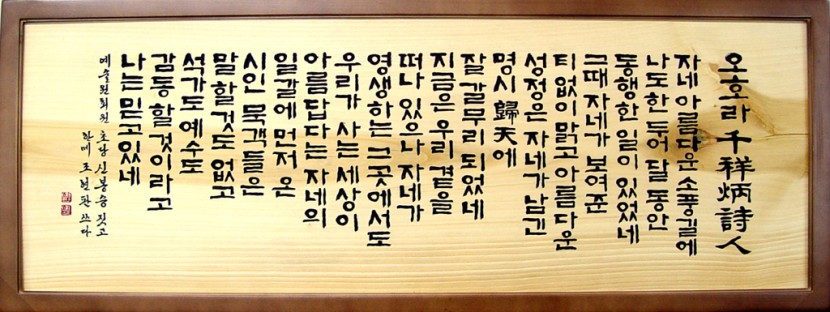 오호라 千祥炳詩人
자네 아름다운 소풍길에
나도 한 두어 달 동안
동행한 일이 있었네
그때 자네가 보여준
티없이 맑고 아름다운
성정은 자네가 남긴
명시 歸天에
잘 갈무리 되었네
지금은 우리 곁을
떠나 있으나 자네가
영생하는 그곳에서도
우리가 사는 세상이
아름답다는 자네의
일갈에 먼저 온
시인 묵객들은
말 할것도 없고
석가도 예수도
감동 할것이라고
나는 믿고 있네
예술원 회원 초당 신봉승 짓고
한메 조현판 쓰다